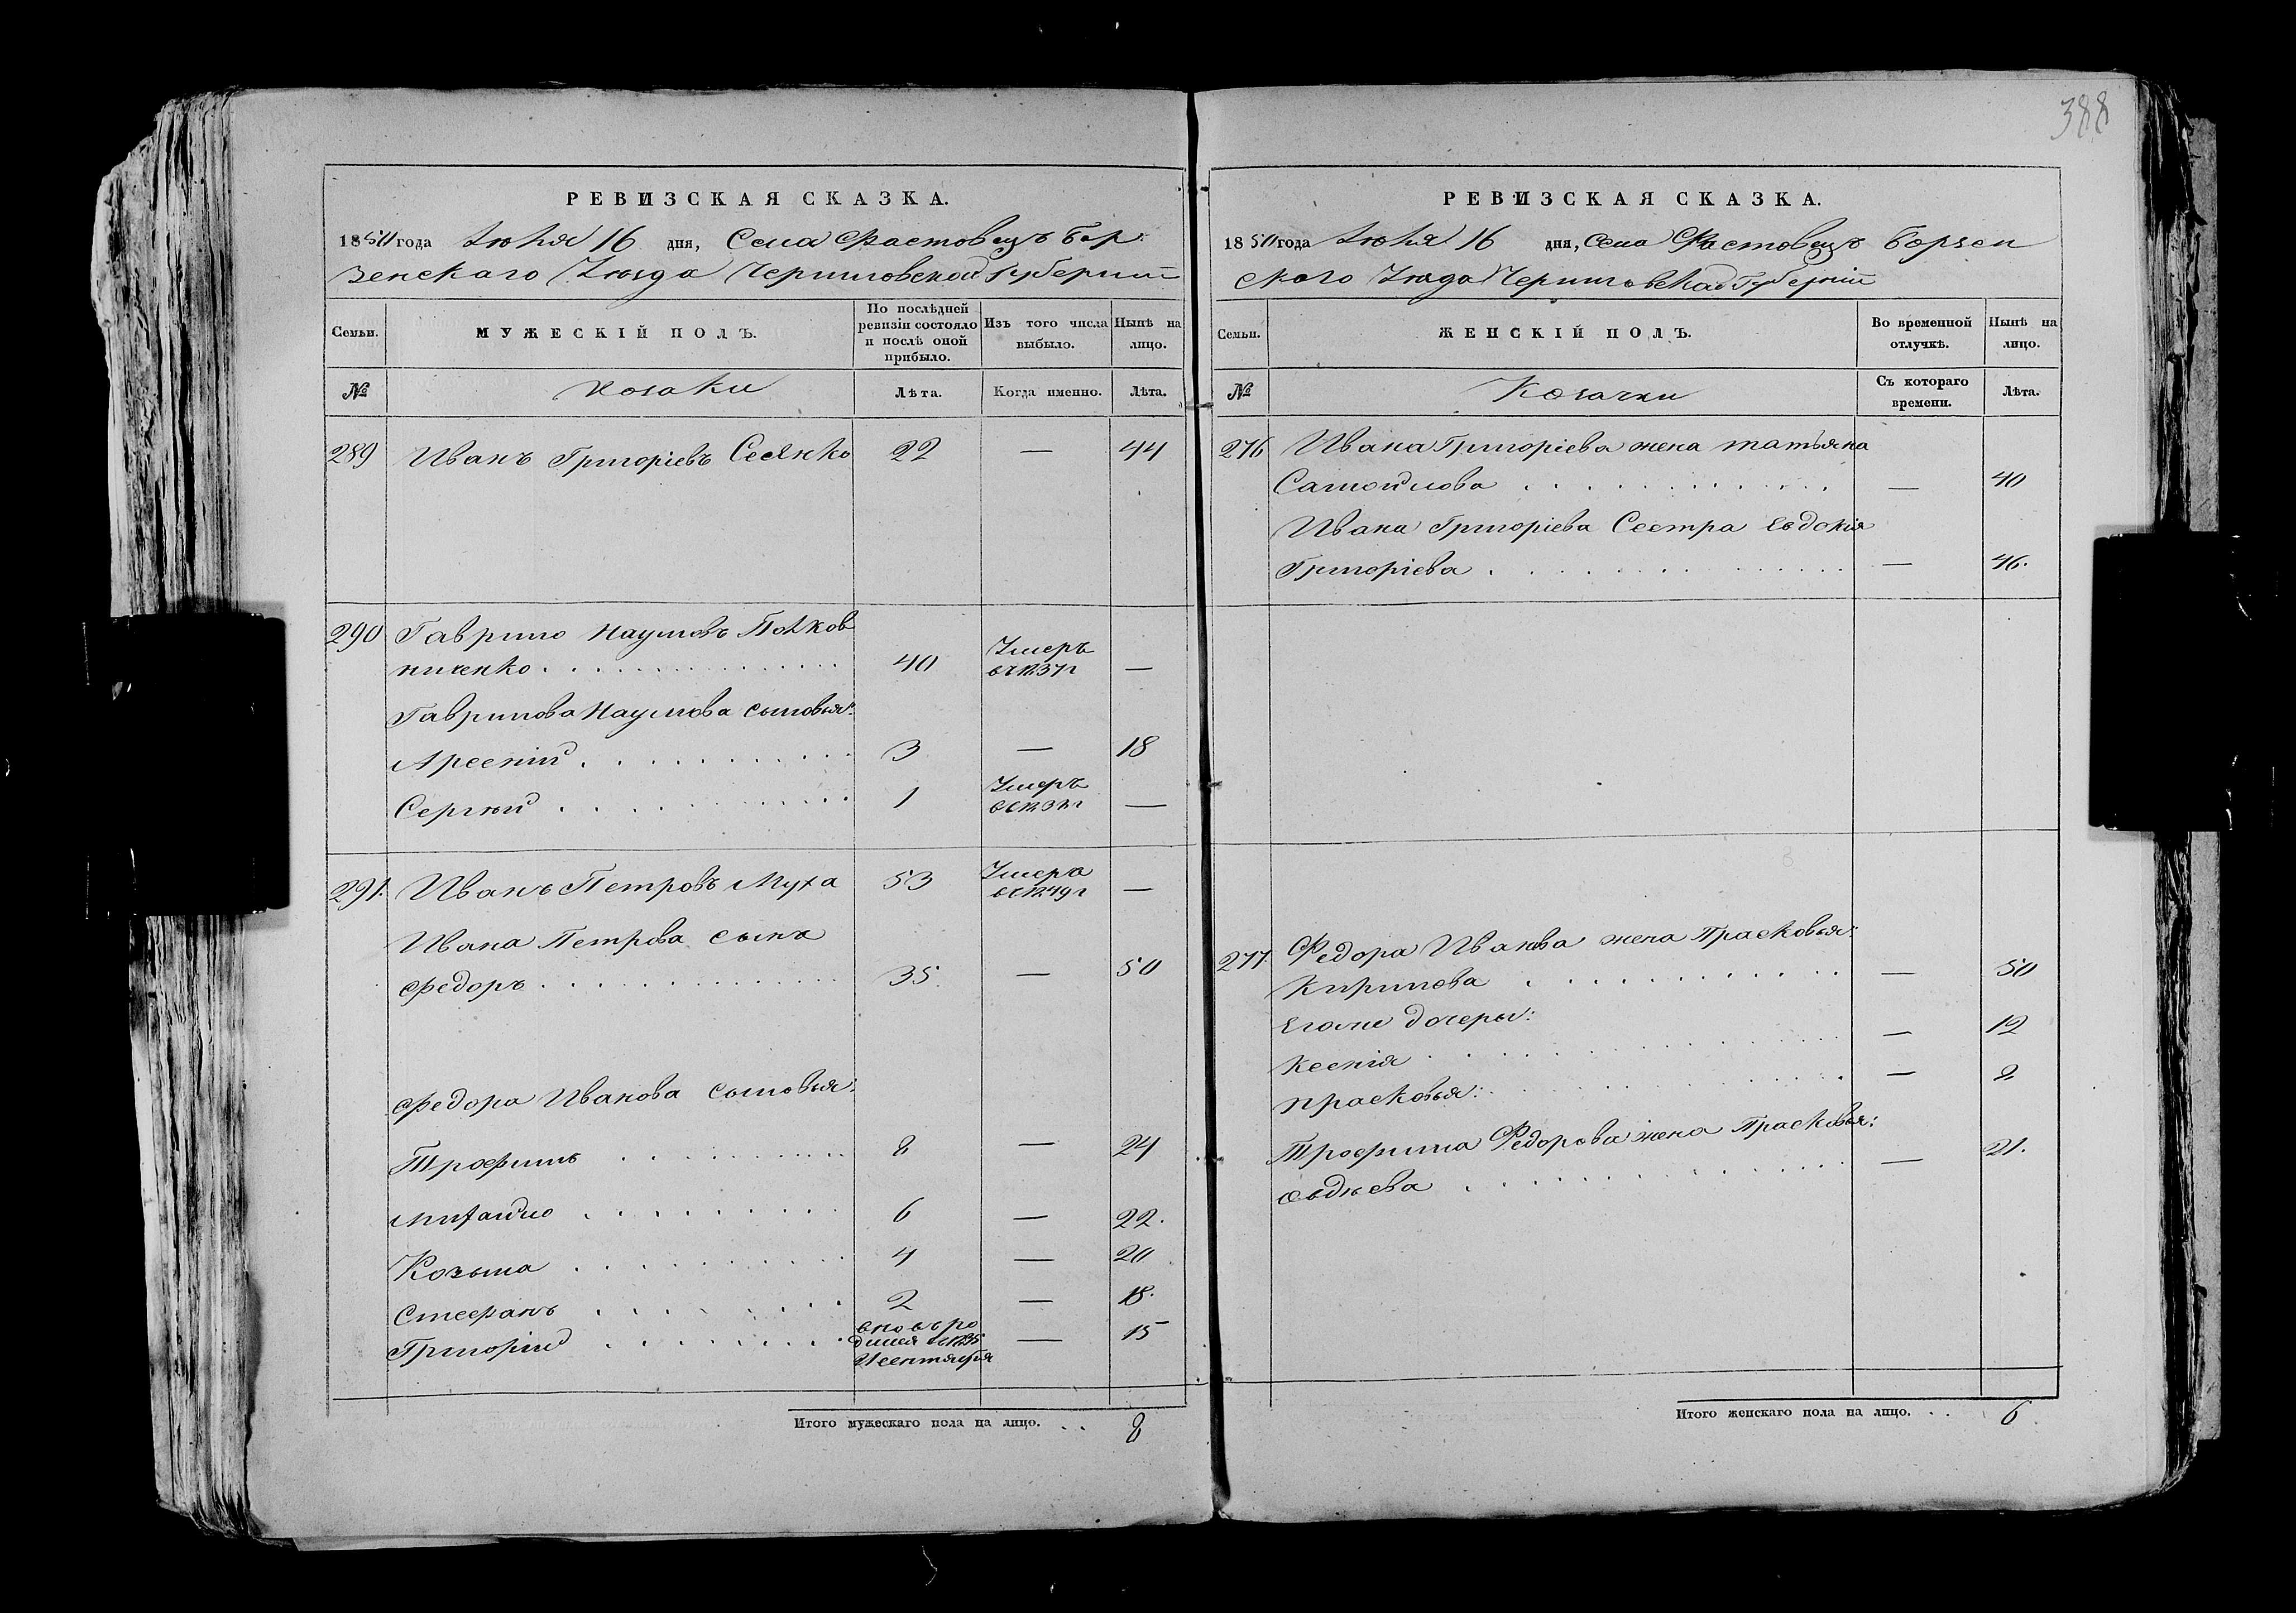 388
РЕВИЗСКАЯ СКАЗКА.
1850 года Июня 16 дня, Села Фастовецъ Бор
зенскаго Уезда Черниговской Губерніи
Семьи.
МУЖЕСКІЙ ПОЛЪ.
По послѣдней ревизіи состояло и послѣ оной прибыло.
Изъ того числа выбыло.
Нынѣ на лицо.
№
Козаки
Лѣта.
Когда именно.
Лѣта.
289 Иванъ Григоріевъ 22 — 44
290 Гаврило Наумовъ Полков
ниченко 40 Умеръ —
Гаврилова Наумова сыновья:
Арсеній 3 — 18
Сергѣй 1 Умеръ —
291. Иванъ Петровъ Муха 53 Умеръ в 1849 г —
Ивана Петрова сынъ
Федоръ 35 — 50
Федора Иванова сыновья:
Трофимъ 8 — 24
Михайло 6 — 22.
Козьма 4 — 20
Стефанъ 2 — 18.
Григорій — 15
вновь ро
дился
сентября
Итого мужескаго пола на лицо. . . 8
РЕВИЗСКАЯ СКАЗКА.
1850 года Июня 16 дня, Села Фастовецъ Борзен
ского Уезда Черниговской Губерніи
Семьи.
ЖЕНСКІЙ ПОЛЪ.
Во временной отлучкѣ.
Нынѣ на лицо.
№
Козачки
Съ котораго времени.
Лѣта.
276 Ивана Григоріева жена татьяна
Самойлова — 40
Ивана Григоріева Сестра Евдокія
Григоріева — 46.
277. Федора Иванова жена Прасковья:
Кирилова — 50
Егоже дочеры:
Ксенія — 12
прасковья: — 8
Трофима Федорова жена Прасковья:
— 21.
Итого женскаго пола на лицо. . . 6